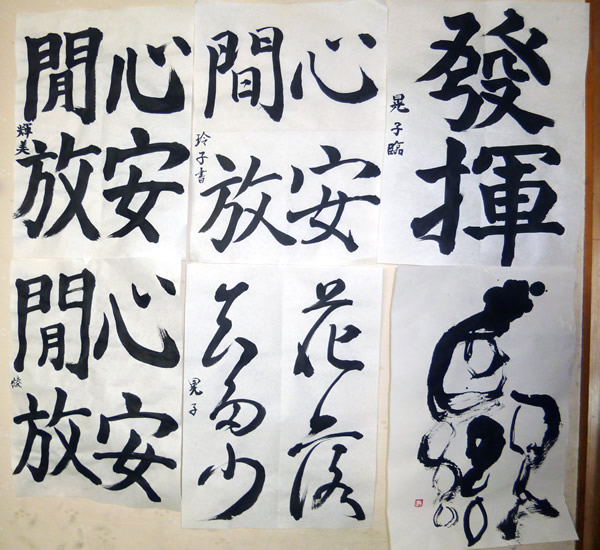 發揮
晃子臨
心安
間放
玲子書
心安
閒放
輝美
花落
知多少
晃子
心安
閒放